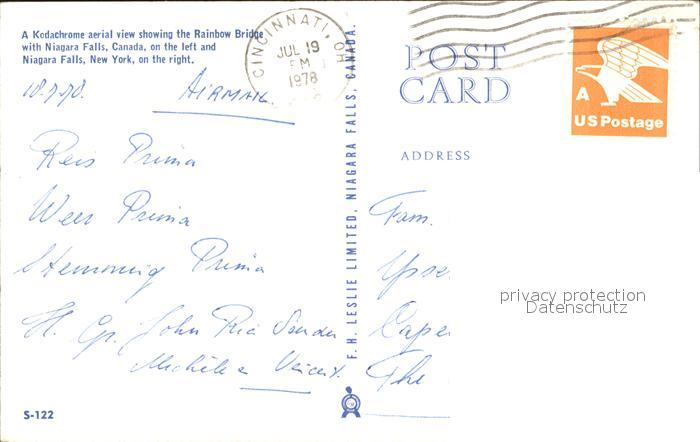 A Kodachrome aerial view showing the Rainbow Bridge
with Niagara Falls, Canada, on the left and
Niagara Falls, New York, on the right.
CINCINNATI, OH
JUL 19
PM
1978
18.7.78. AIRMAIL
Reis Prima
Weer Prima
Stemming Prima
H. Gr. John Ria Sander
Michèle Vincent.
S-122
F. H. LESLIE LIMITED, NIAGARA FALLS, CANADA.
POST
CARD
A
US Postage
ADDRESS
Fam.
The
privacy protection
Datenschutz